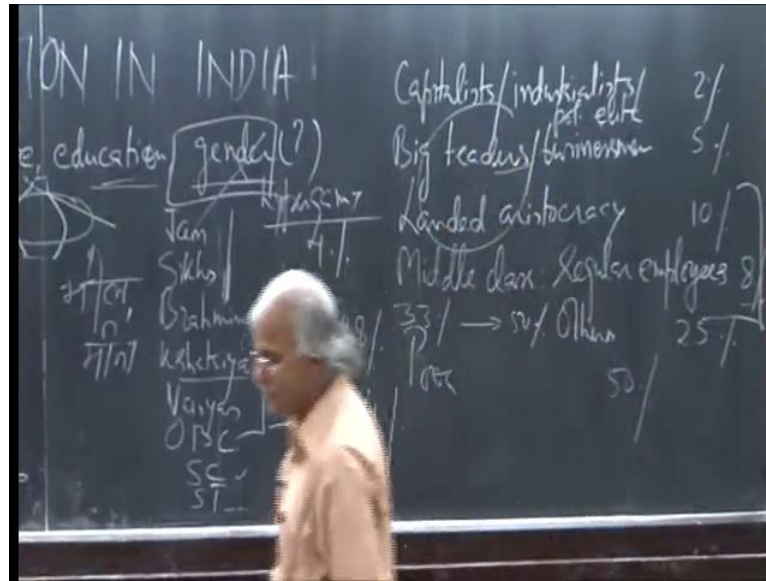 ION IN INDIA
e, education, gender (?)
Hypergamy
Jain
4%
Sikhs
Brahmin
8%
Kshatriya
Vaisyas
OBC
SC
ST
Capitalists/industrialists/ 2%
pol. elite
Big traders/businessmen 5%
Landed aristocracy 10%
Middle class: Regular employees 8
33% → 50% Others 25%
Poor
50%